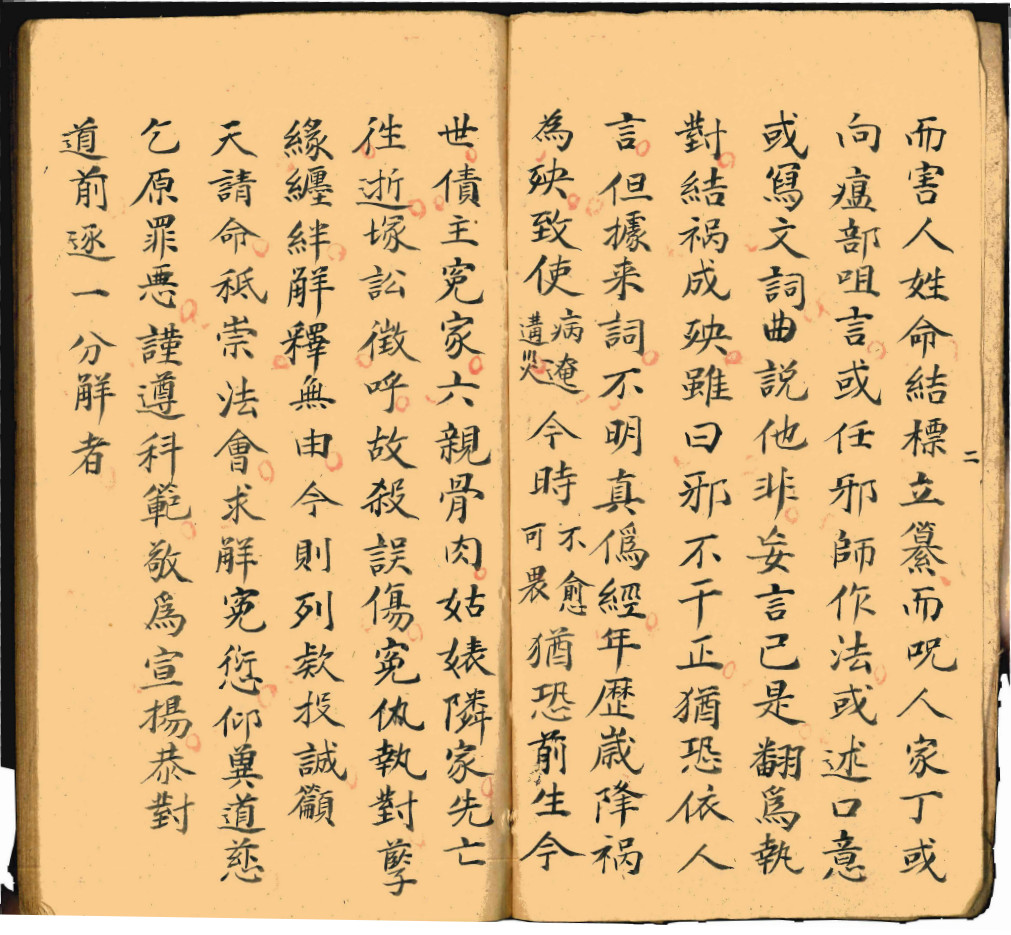 而害人姓命結標立纂而呪人家丁或
二
向瘟部咀言或任邪師作法或述口意
或寫文詞曲說他非妄言己是翻爲執
對結禍成殃雖曰邪不干正猶恐依人
言但據来詞不明真僞經年歷歲降禍
為殃致使病遶遘災今時不愈可畏猶恐前生今
世債主寃家六親骨肉姑婊隣家先亡
徃逝塚訟徴呼故殺誤傷寃仇執對孽
緣纏絆解釋無由今則列欵投誠籲
天請命秪崇法會求解寃愆仰兾道慈
乞原罪惡謹遵科範敬爲宣揚恭對
道前逐一分解者